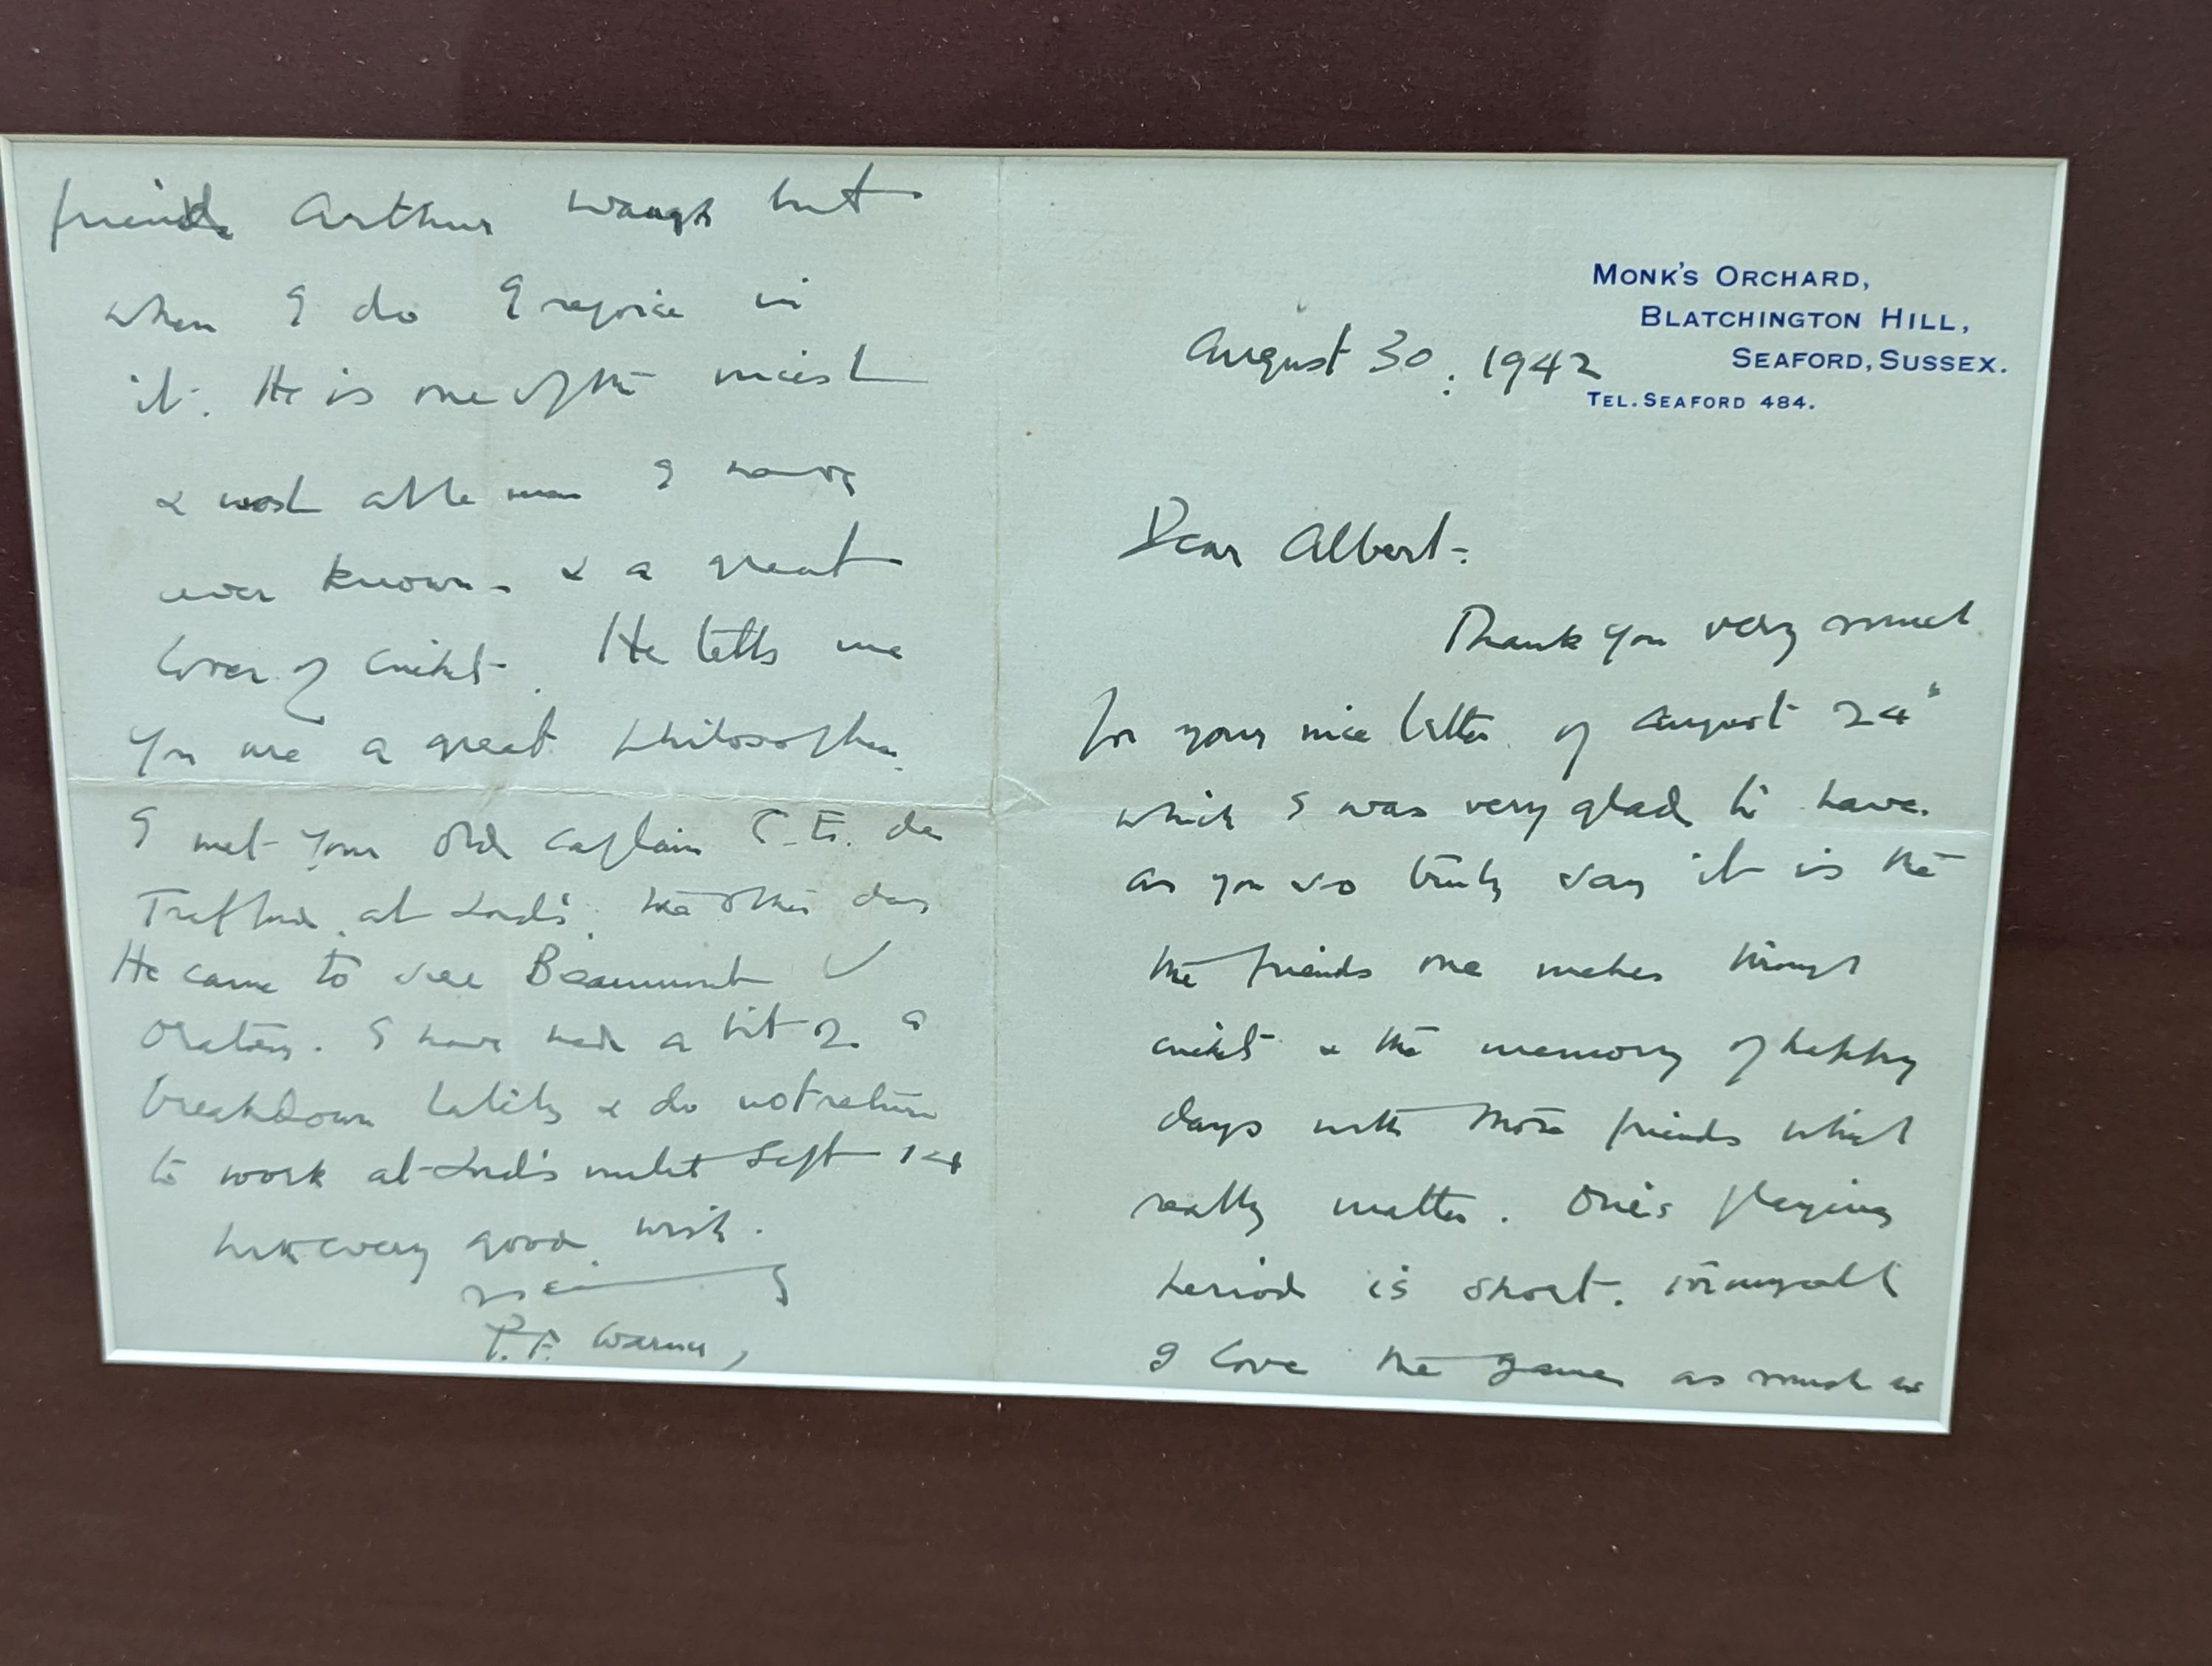 MONK'S ORCHARD,
BLATCHINGTON HILL,
SEAFORD, SUSSEX.
TEL. SEAFORD 484.
August 30. 1942
Dear Albert-
Thank you very much
for your nice letter of August 24th
which I was very glad to have.
As you so truly say it is the
the friends one makes through
cricket & the memory of happy
days with those friends which
really matter. One's playing
period is short. For myself
I love the game as much as
friend Arthur Waugh but
when I do I rejoice in
it. He is one of the nicest
& most able men I have
ever known - & a great
lover of cricket. He tells me
you are a great philosopher.
I met your old captain C. E. de
Trafford at Lord's the other day
He came to see Beaumont v
Oratory. I have had a bit of a
breakdown lately & do not return
to work at Lord's until Sept 14
With every good wish.
P. F. Warner